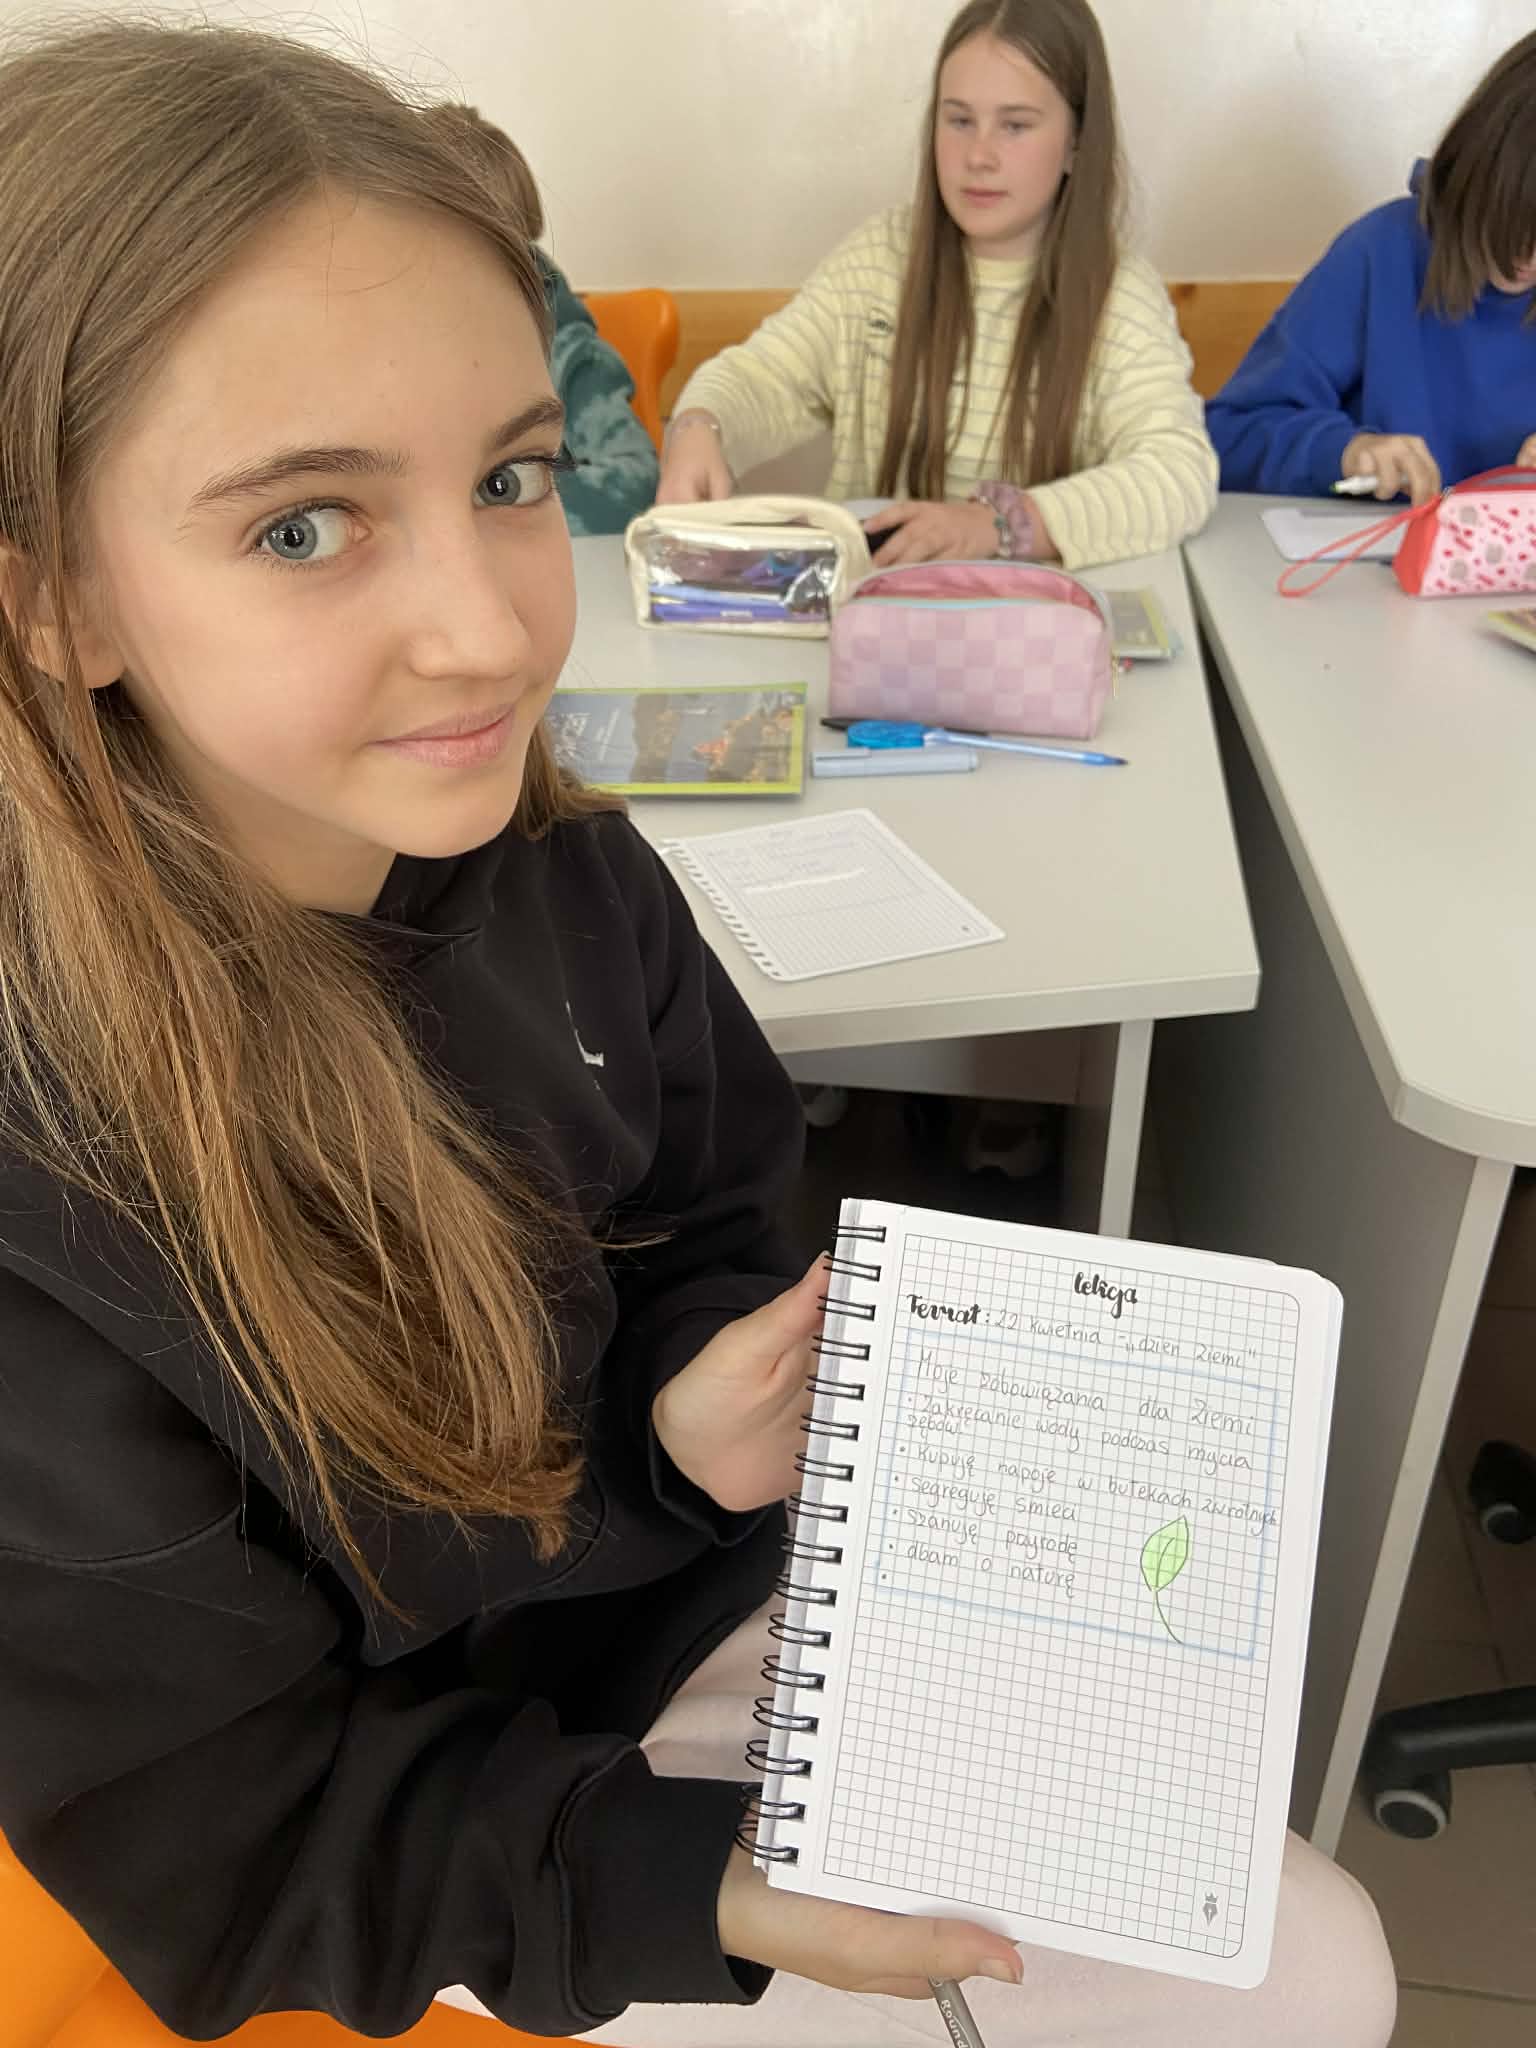 lekcja
Temat: 22 kwietnia - „dzień Ziemi"
Moje zobowiązania dla Ziemi
• Zakręcanie wody podczas mycia
zębów.
• Kupuję napoje w butekach zwrotnych
• segreguję śmieci
• szanuję przyrodę
• dbam o naturę
•
Round